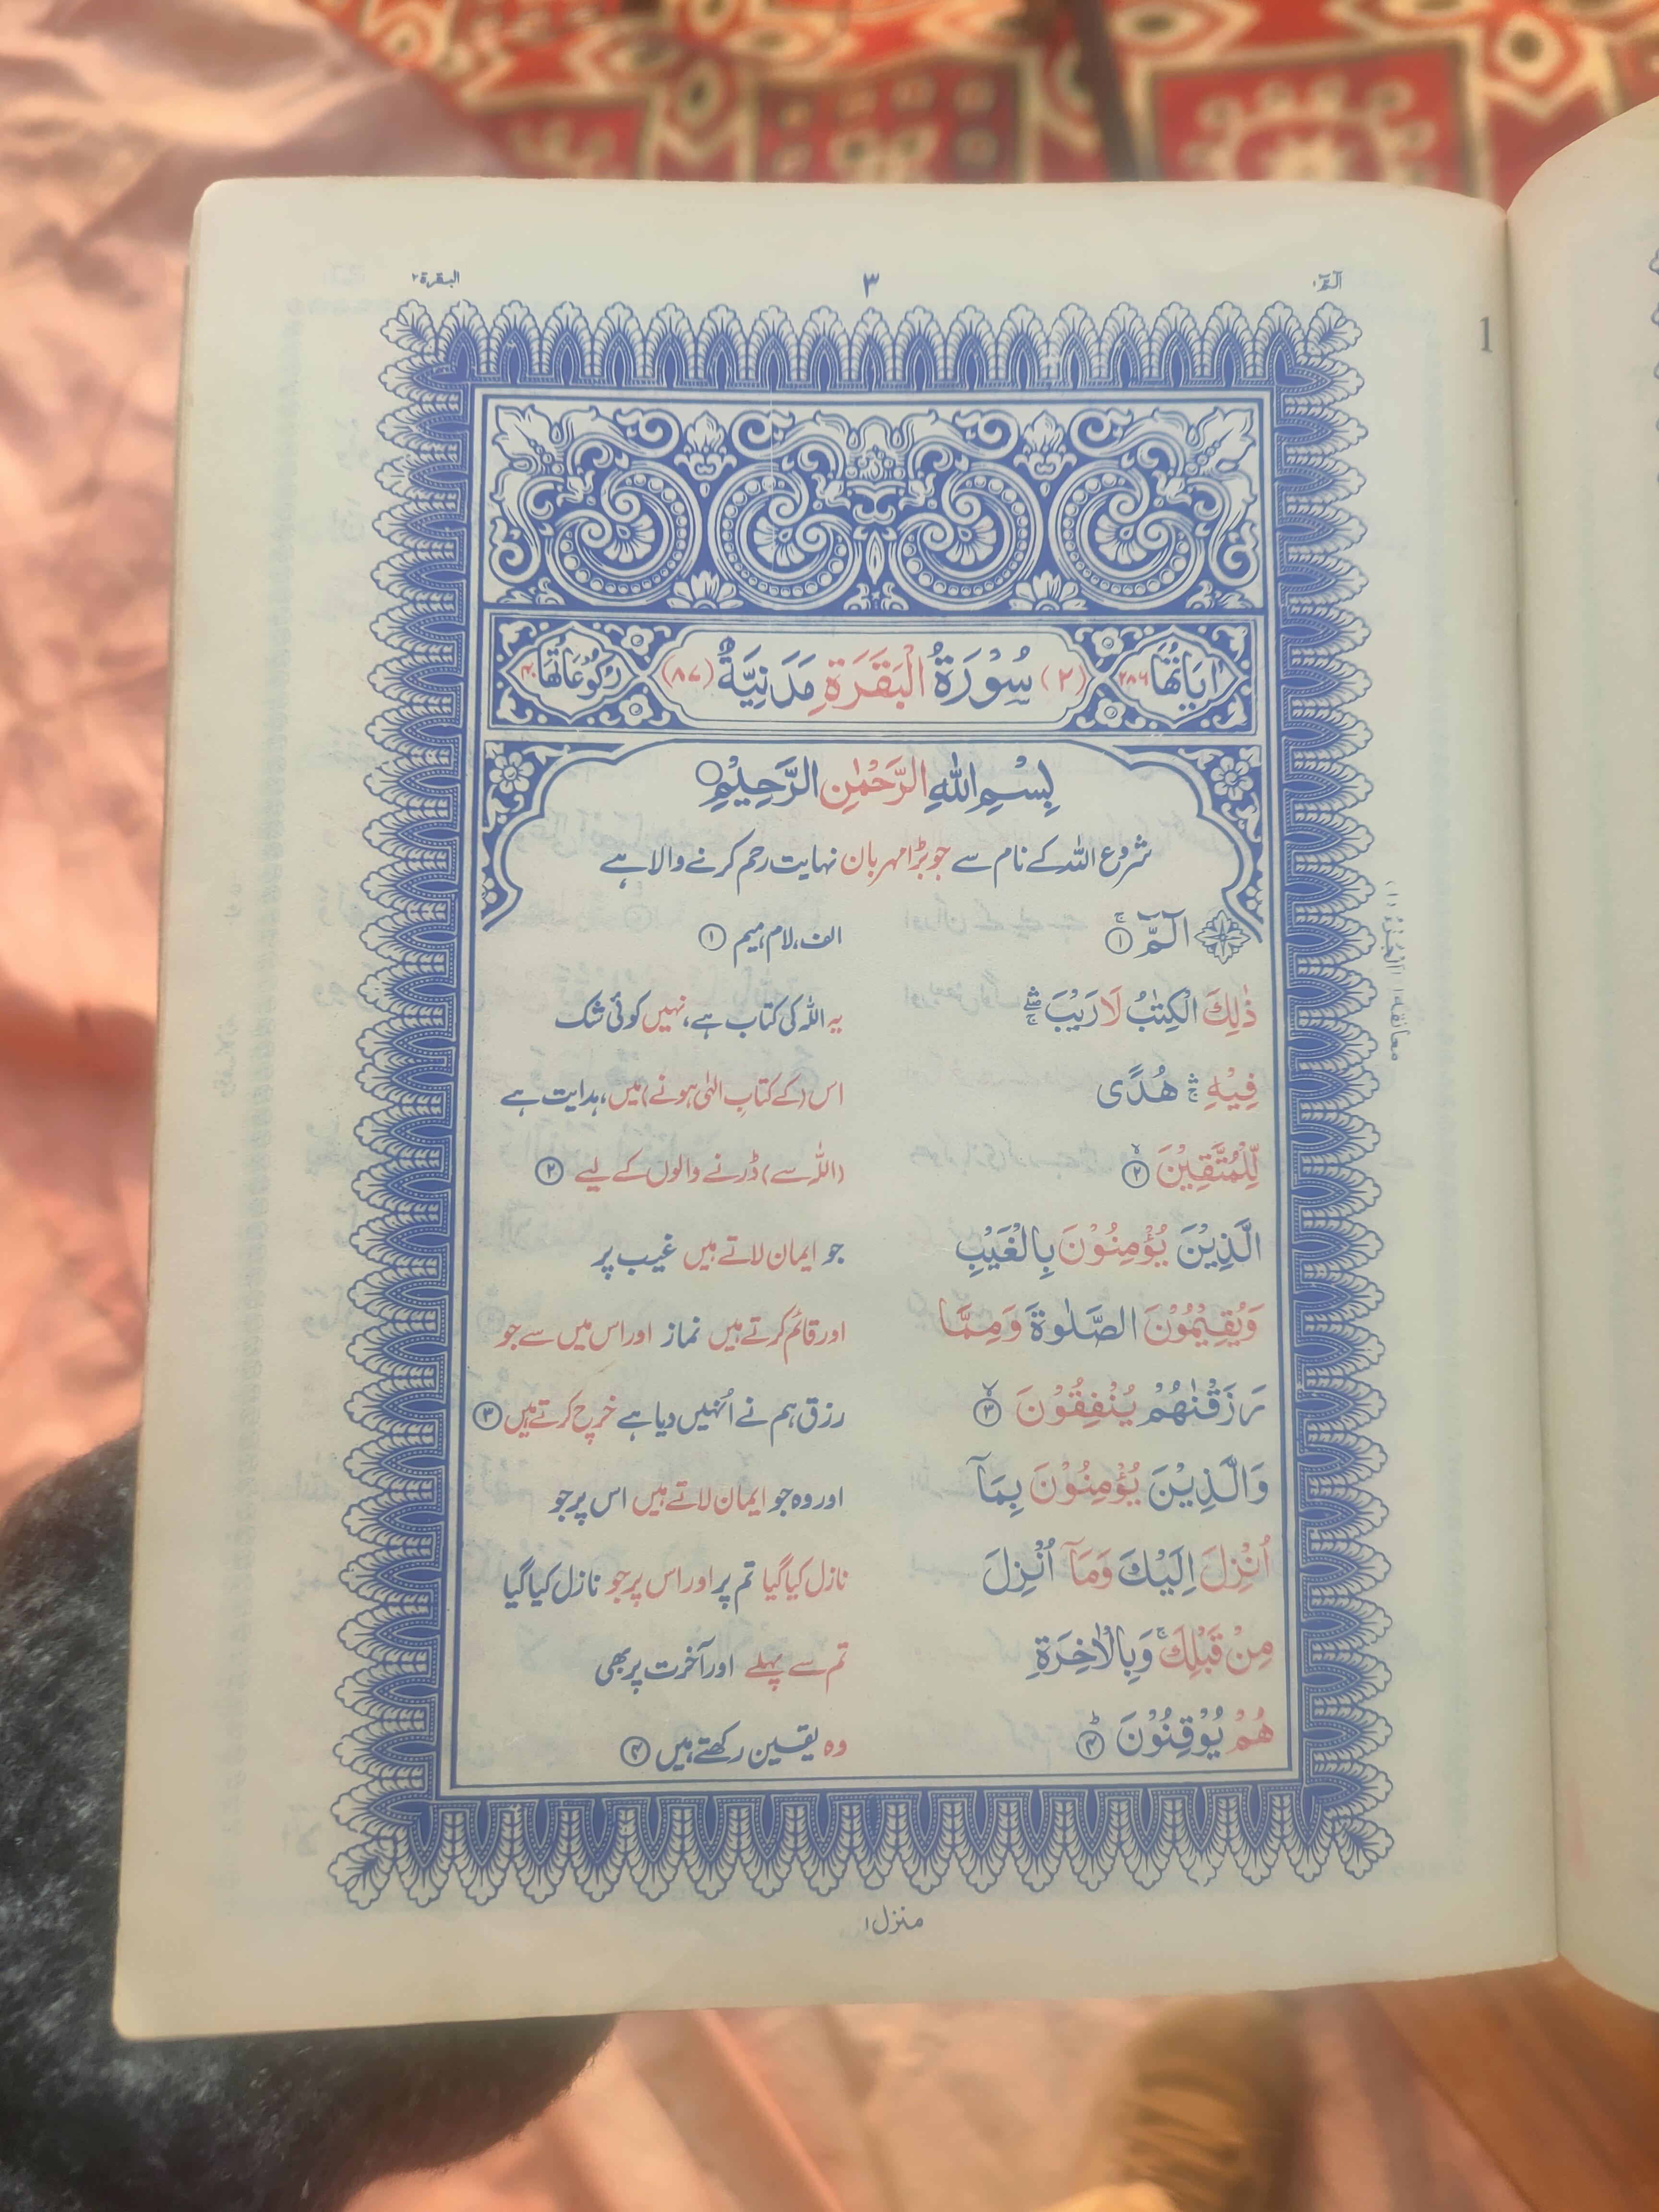 الٓمّٓ ١
٣
البقرة ٢
1
اٰيَاتُهَا ٢٨٦
(٢) سُوْرَةُ الْبَقَرَةِ مَدَنِيَّةٌ (٨٧)
رُكُوْعَاتُهَا ٤٠
بِسْمِ اللّٰهِ الرَّحْمٰنِ الرَّحِيْمِ ○
شروع اللہ کے نام سے جو بڑا مہربان نہایت رحم کرنے والا ہے
الٓمّٓ ۚ ① الف، لام، میم ①
ذٰلِكَ الْكِتٰبُ لَا رَيْبَ ۛۚ یہ اللہ کی کتاب ہے، نہیں کوئی شک
فِيْهِ ۛۚ هُدًى اس (کے کتابِ الٰہی ہونے) میں، ہدایت ہے
لِّلْمُتَّقِيْنَ ۙ ② (اللہ سے) ڈرنے والوں کے لیے ②
الَّذِيْنَ يُؤْمِنُوْنَ بِالْغَيْبِ جو ایمان لاتے ہیں غیب پر
وَيُقِيْمُوْنَ الصَّلٰوةَ وَمِمَّا اور قائم کرتے ہیں نماز اور اس میں سے جو
رَزَقْنٰهُمْ يُنْفِقُوْنَ ۙ ③ رزق ہم نے اُنہیں دیا ہے خرچ کرتے ہیں ③
وَالَّذِيْنَ يُؤْمِنُوْنَ بِمَآ اور وہ جو ایمان لاتے ہیں اس پر جو
اُنْزِلَ اِلَيْكَ وَمَآ اُنْزِلَ نازل کیا گیا تم پر اور اس پر جو نازل کیا گیا
مِنْ قَبْلِكَ ۚ وَبِالْاٰخِرَةِ تم سے پہلے اور آخرت پر بھی
هُمْ يُوْقِنُوْنَ ؕ ④ وہ یقین رکھتے ہیں ④
منزل ١